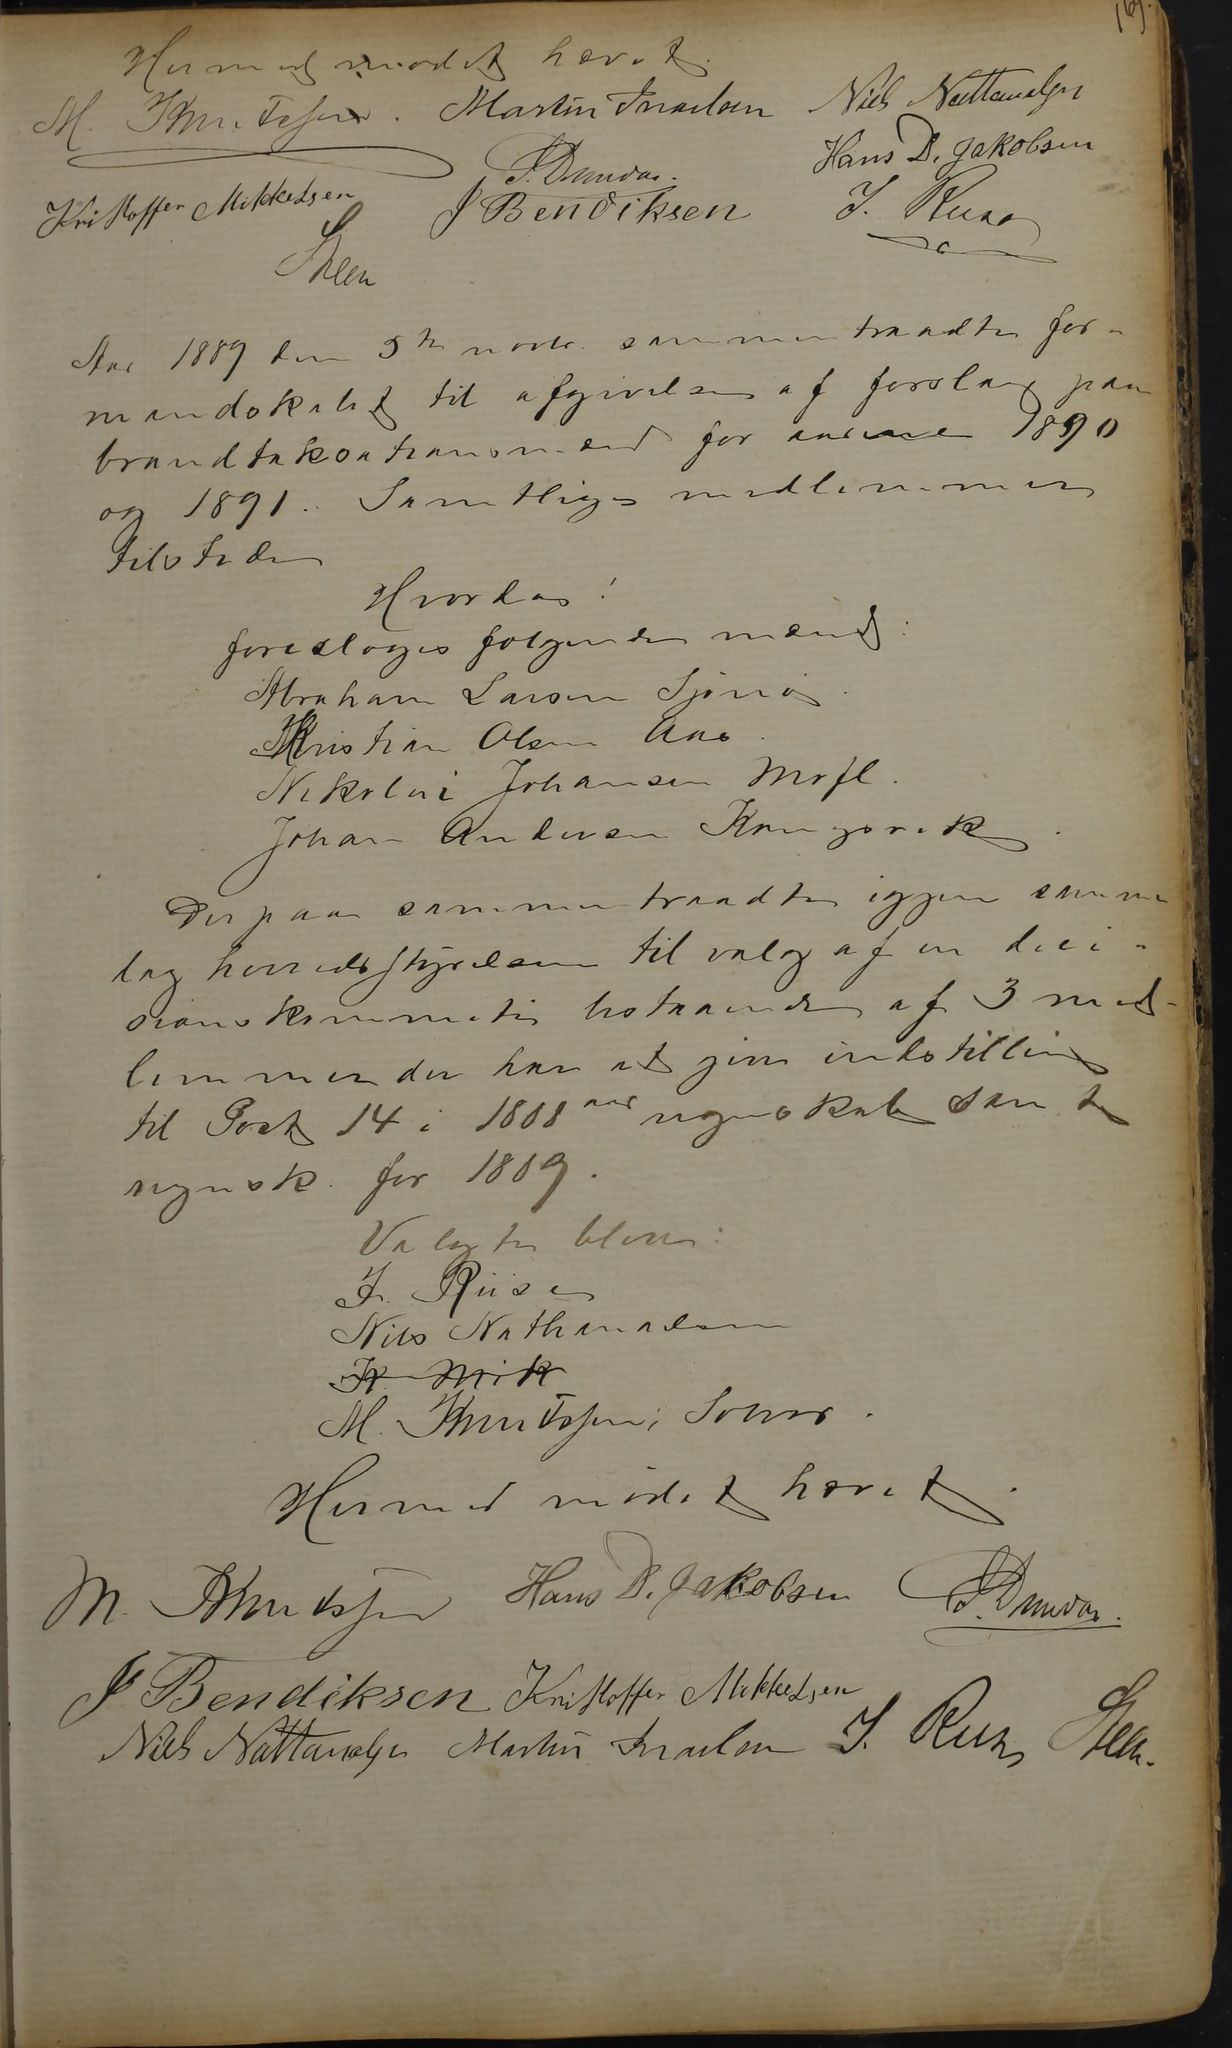 169.
Hermed mødet hævet.
M. Knutssen. Martin Israelsen Niels Nattanalsen
P. Dunvar. Hans D. Jakobsen
Kristoffer Mikkelsen J Bendiksen I. Ruse
Steen
Aar 1889 den 5te novbr. sammentraadte for-
mandskabet til afgivelse af forslag paa
brandtaksationsmænd for aarene 1890
og 1891. Samtlige medlemmer
tilstede
Hvorda!
foresloges følgende mænd:
Abraham Larsen
Kristian Olsen Aas.
Nikolai Johansen Mofl.
Johan Andersen Kongsvik.
Derpaa sammentraadte iggjen samme
dag herredsstyrelsen til valg af en deci-
sionskommite bestaaende af 3 med-
lemmer der har at give indstilling
til Post 14 i 1888 aars regnskab samt
regnsk. for 1889.
Valgte bleve:
I. Riise
Nils Nathanaelsen
K Mik
M. Knutssen,
Hermed mødet hævet.
M. Knutssen Hans D. Jakobsen P. Dunvar.
J Bendiksen Kristoffer Mikkelsen
Niels Nattanalsen Martin Israelsen I. Ruse Steen.